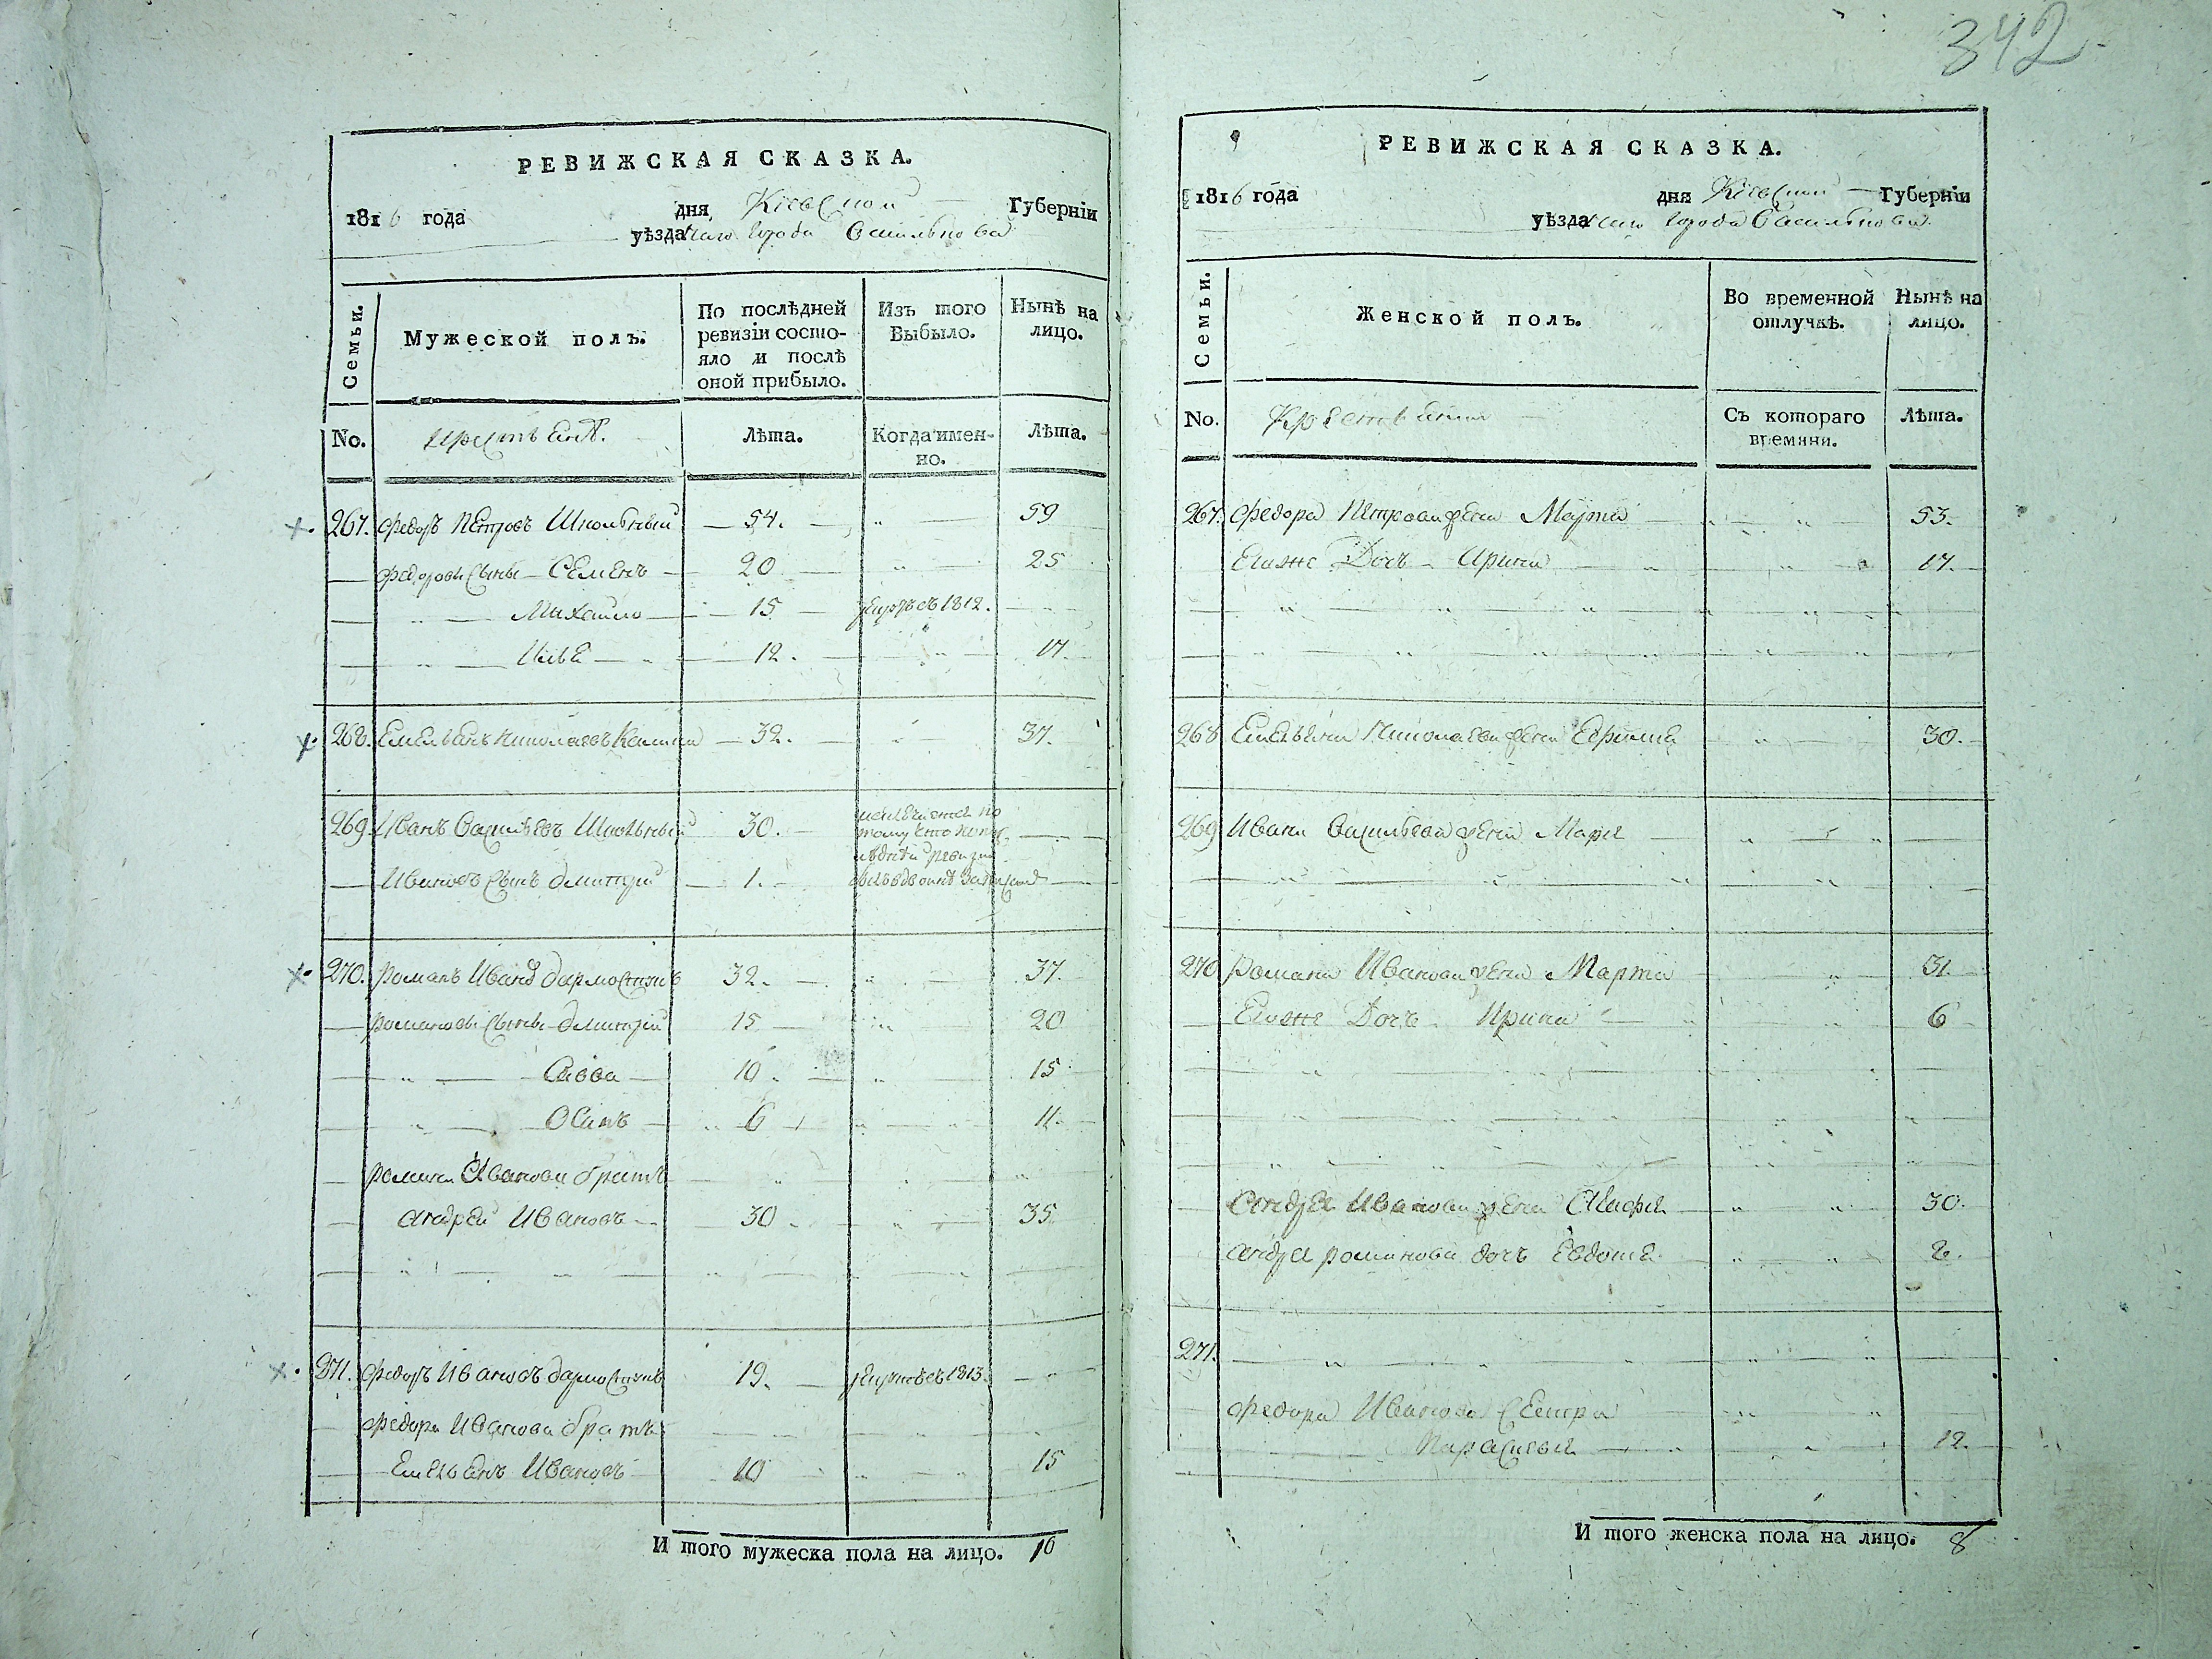 342.
РЕВИЖСКАЯ СКАЗКА.
1816 года дня Кіевской Губерніи
уѣзда города Василькова
Семьи.
Мужеской полъ.
По послѣдней ревизіи состо-
яло и послѣ
оной прибыло.
Изъ того
Выбыло.
Нынѣ на
лицо.
No.
Лѣта.
Когда имен-
но.
Лѣта.
267. Федоръ Петровъ Школьный 54. 59
Федоровы сыны Семенъ 20 25
Михайло 15 умре въ 1812.
Илья 12. 17
268. Емельянъ Николаевъ 32. 37.
269. Иванъ Васильевъ Школьный 30.
Ивановъ сынъ Дмитрій 1.
270. Романъ Ивановъ 32. 37.
Романовы сыны Дмитрій 15 20
Савва 10. 15
Осипъ 6 11.
Романа Иванова братъ
Андрей Ивановъ 30 35
271. Федоръ Ивановъ 19. 1813.
Федора Иванова братъ
Емельянъ Ивановъ 10 15
И того мужеска пола на лицо. 10
РЕВИЖСКАЯ СКАЗКА.
1816 года дня Кіевской Губерніи
уѣзда города Василькова
Семьи.
Женской полъ.
Во временной
отлучкѣ.
Нынѣ на
лицо.
No.
Съ котораго
времяни.
Лѣта.
267. Федора Петрова жена Марта 53.
Его же Дочь Ирина 17.
268 Емельяна Николаева жена 30.
269 Ивана Васильева жена Марія
270 Романа Иванова жена Марта 31.
Его же Дочь Ирина 6
Андрея Иванова жена Агафія 30.
Андрея Романова дочь 2.
271.
Федора Иванова сестра
Параскевія 12.
И того женска пола на лицо. 8